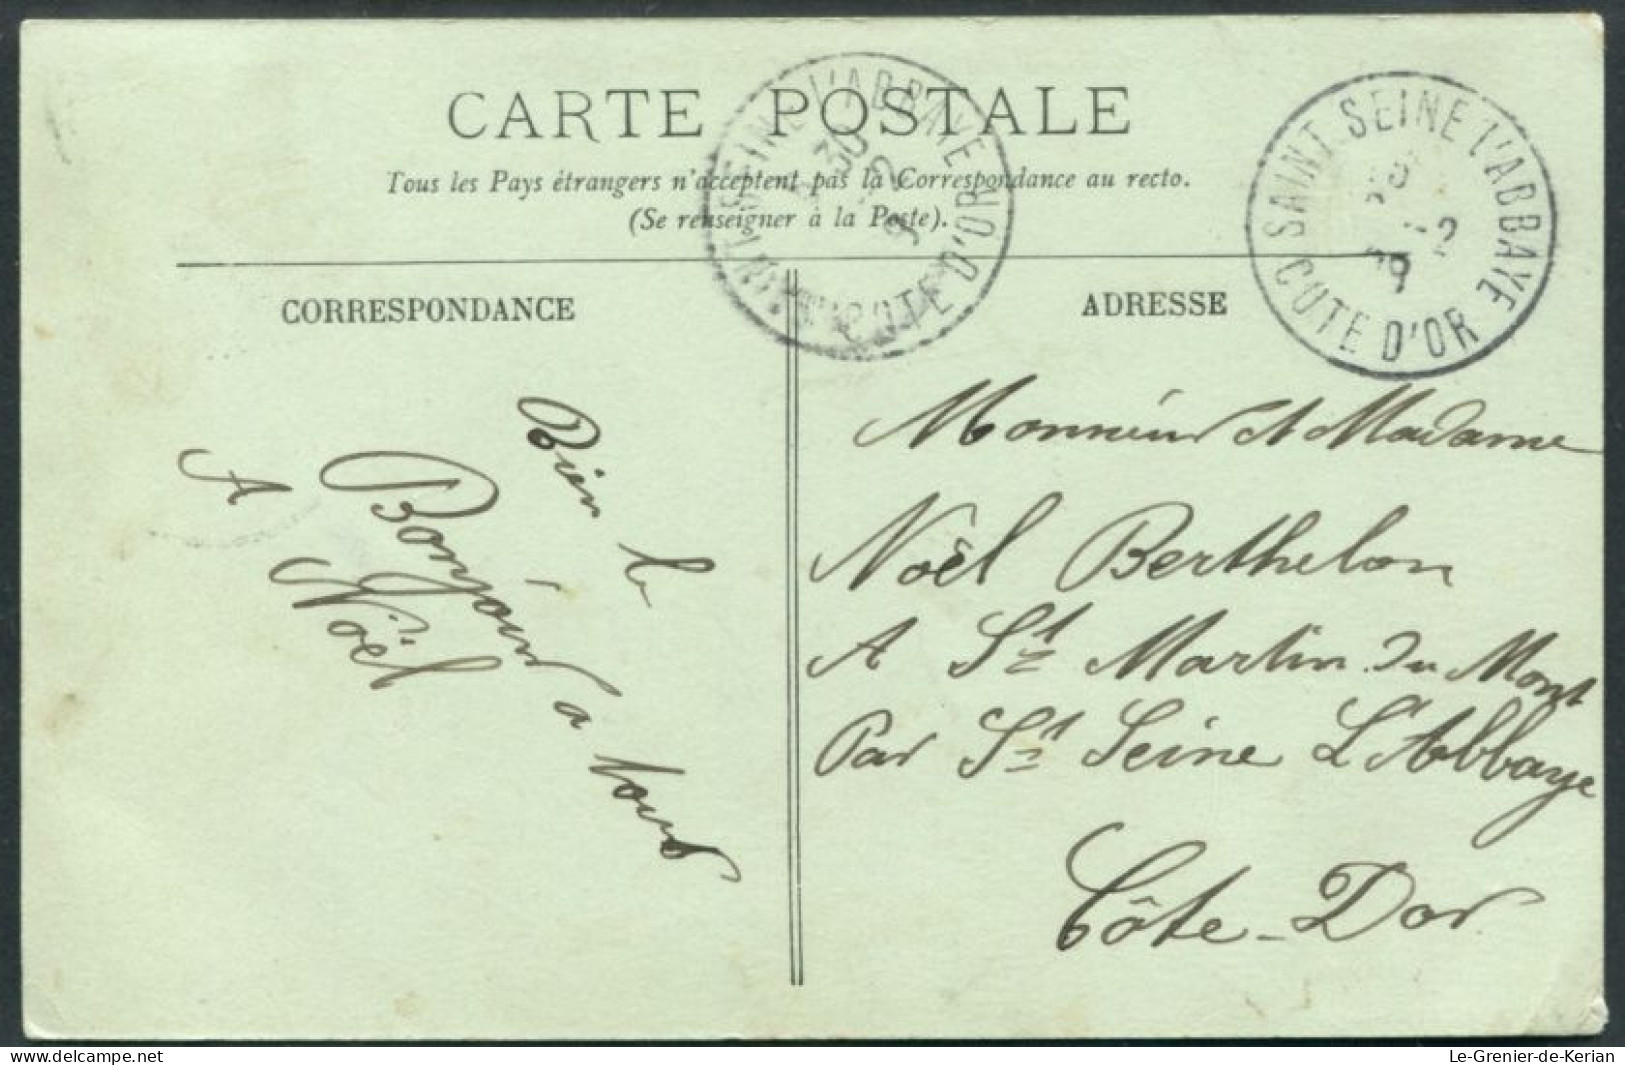 CARTE POSTALE
Tous les Pays étrangers n'acceptent pas la Correspondance au recto.
(Se renseigner à la Poste).
SAINT SEINE L'ABBAYE
COTE D'OR
SAINT SEINE L'ABBAYE
9
COTE D'OR
CORRESPONDANCE
Bien le
Bonjour a tous
A Noël
ADRESSE
Monsieur et Madame
Noël Berthelon
A St Martin du Mont
Par St Seine L'Abbaye
Côte-Dor
Le-Grenier-de-Kerian
www.delcampe.net